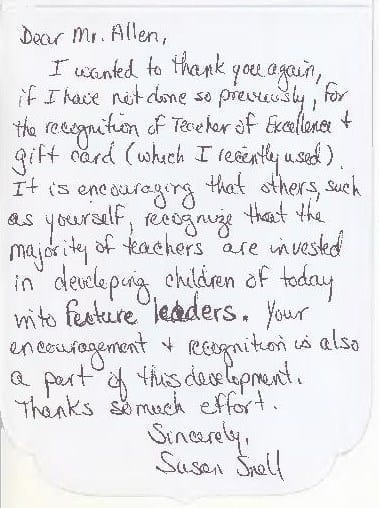 Dear Mr. Allen,
I wanted to thank you again,
if I have not done so previously, for
the recognition of Teacher of Excellence +
gift card (which I recently used).
It is encouraging that others, such
as yourself, recognize that the
majority of teachers are invested
in developing children of today
into future leaders. Your
encouragement + recognition is also
a part of this development.
Thanks so much effort.
Sincerely,
Susan Snell